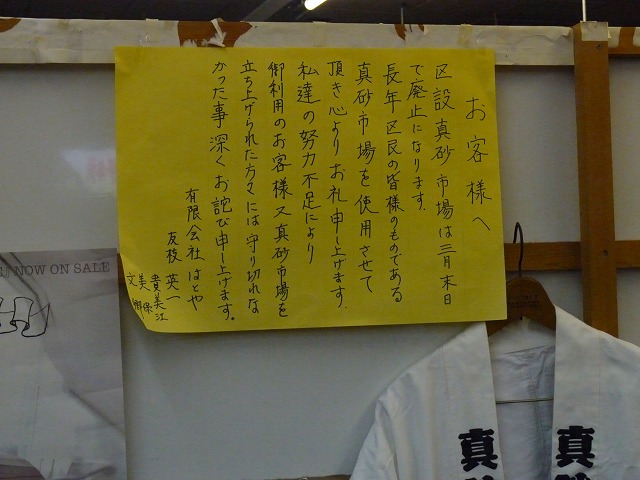 お客様へ
区設真砂市場は三月末日
で廃止になります.
長年区民の皆様のものである
真砂市場を使用させて
頂き心よりお礼申し上げます.
私達の努力不足により
御利用のお客様又真砂市場を
立ち上げられた方々には守り切れな
かった事深くお詫び申し上げます。
有限会社はとや
友枝英一
貴美江
美保
文郷
NOW ON SALE
真砂
真砂